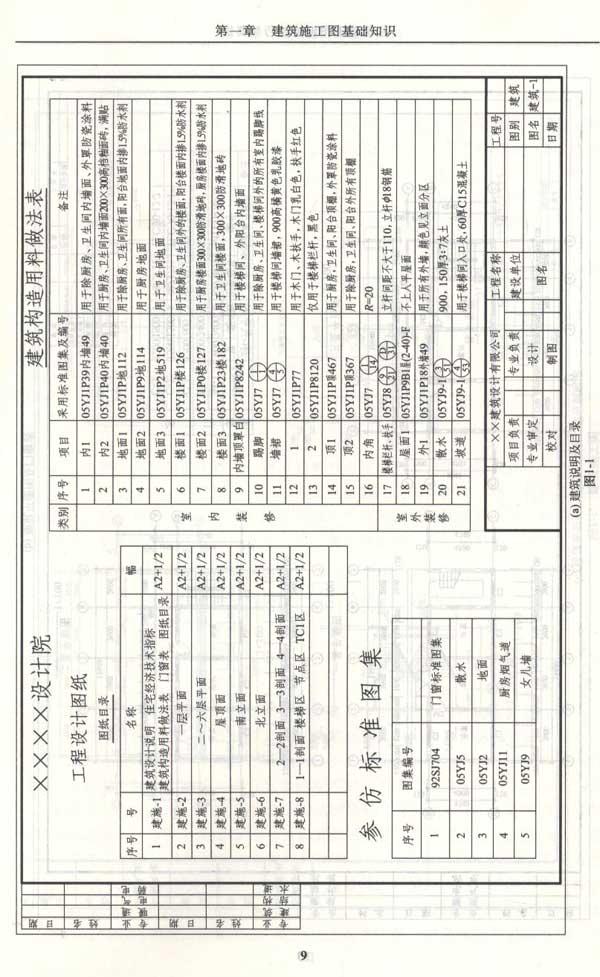 第一章 建筑施工图基础知识
××××设计院
工程设计图纸
图纸目录
序号 号 名称 幅
1 建施-1 建筑设计说明 住宅经济技术指标
建筑构造用料做法表 门窗表 图纸目录 A2+1/2
2 建施-2 一层平面 A2+1/2
3 建施-3 二～六层平面 A2+1/2
4 建施-4 屋顶面 A2+1/2
5 建施-5 南立面 A2+1/2
6 建施-6 北立面 A2+1/2
7 建施-7 2—2剖面 3—3剖面 4—4剖面 A2+1/2
8 建施-8 1—1剖面 楼梯区 节点区 TC1区 A2+1/2
参仿标准图集
序号 图集编号
1 92SJ704 门窗标准图集
2 05YJ5 散水
3 05YJ2 地面
4 05YJ11 厨房烟气道
5 05YJ9 女儿墙
建筑构造用料做法表
类别 序号 项目 采用标准图集及编号 备注
室内装修
1 内1 05YJ1P39内墙49 用于除厨房、卫生间内墙面、外罩防瓷涂料
2 内2 05YJ1P40内墙40 用于厨房、卫生间内墙面200×300高档釉面砖，满贴
3 地面1 05YJ1P地112 用于除厨房、卫生间所有面，阳台地面内掺1.5%防水剂
4 地面2 05YJ1P9地114 用于厨房地面
5 地面3 05YJ1P2地519 用于卫生间地面
6 楼面1 05YJ1P楼126 用于除厨房、卫生间外的楼面，阳台楼面内掺1.5%防水剂
7 楼面2 05YJ1P0楼127 用于厨房楼面300×300防滑地砖，厨房楼面内掺1.5%防水剂
8 楼面3 05YJ1P23楼182 用于卫生间楼面，300×300防滑地砖
9 内墙顶罩白 05YJ1P8242 用于楼梯间、外阳台内墙面
10 踢脚 05YJ7 用于除厨房、卫生间、楼梯间外的所有室内踢脚线
11 墙裙 05YJ7 用于楼梯间墙裙，900高橘黄色乳胶漆
12 1 05YJ1P77 用于木门、木扶手，木门乳白色，扶手红色
13 2 05YJ1P8120 仅用于楼梯栏杆，黑色
14 顶1 05YJ1P顶467 用于厨房，卫生间、阳台顶棚，外罩防瓷涂料
15 顶2 05YJ1P顶367 用于除厨房，卫生间、阳台外所有顶棚
16 内角 05YJ7 R=20
室外装修
17 楼梯栏杆、扶手 05YJ8 立杆间距不大于110，立杆Φ18钢筋
18 屋面1 05YJ1P9B1屋(2-40)-F 不上人平屋面
19 外1 05YJ1P18外墙49 用于所有外墙，颜色见立面分区
20 散水 05YJ9-1 900，150厚3:7灰土
21 坡道 05YJ9-1 用于楼梯间入口处，60厚C15混凝土
××建筑设计有限公司 工程名称 工程号
项目负责 专业负责 建设单位 图别 建筑
专业审定 设计 图名 图名 建筑-1
校对 制图 日期
(a) 建筑说明及目录
图1-1
9